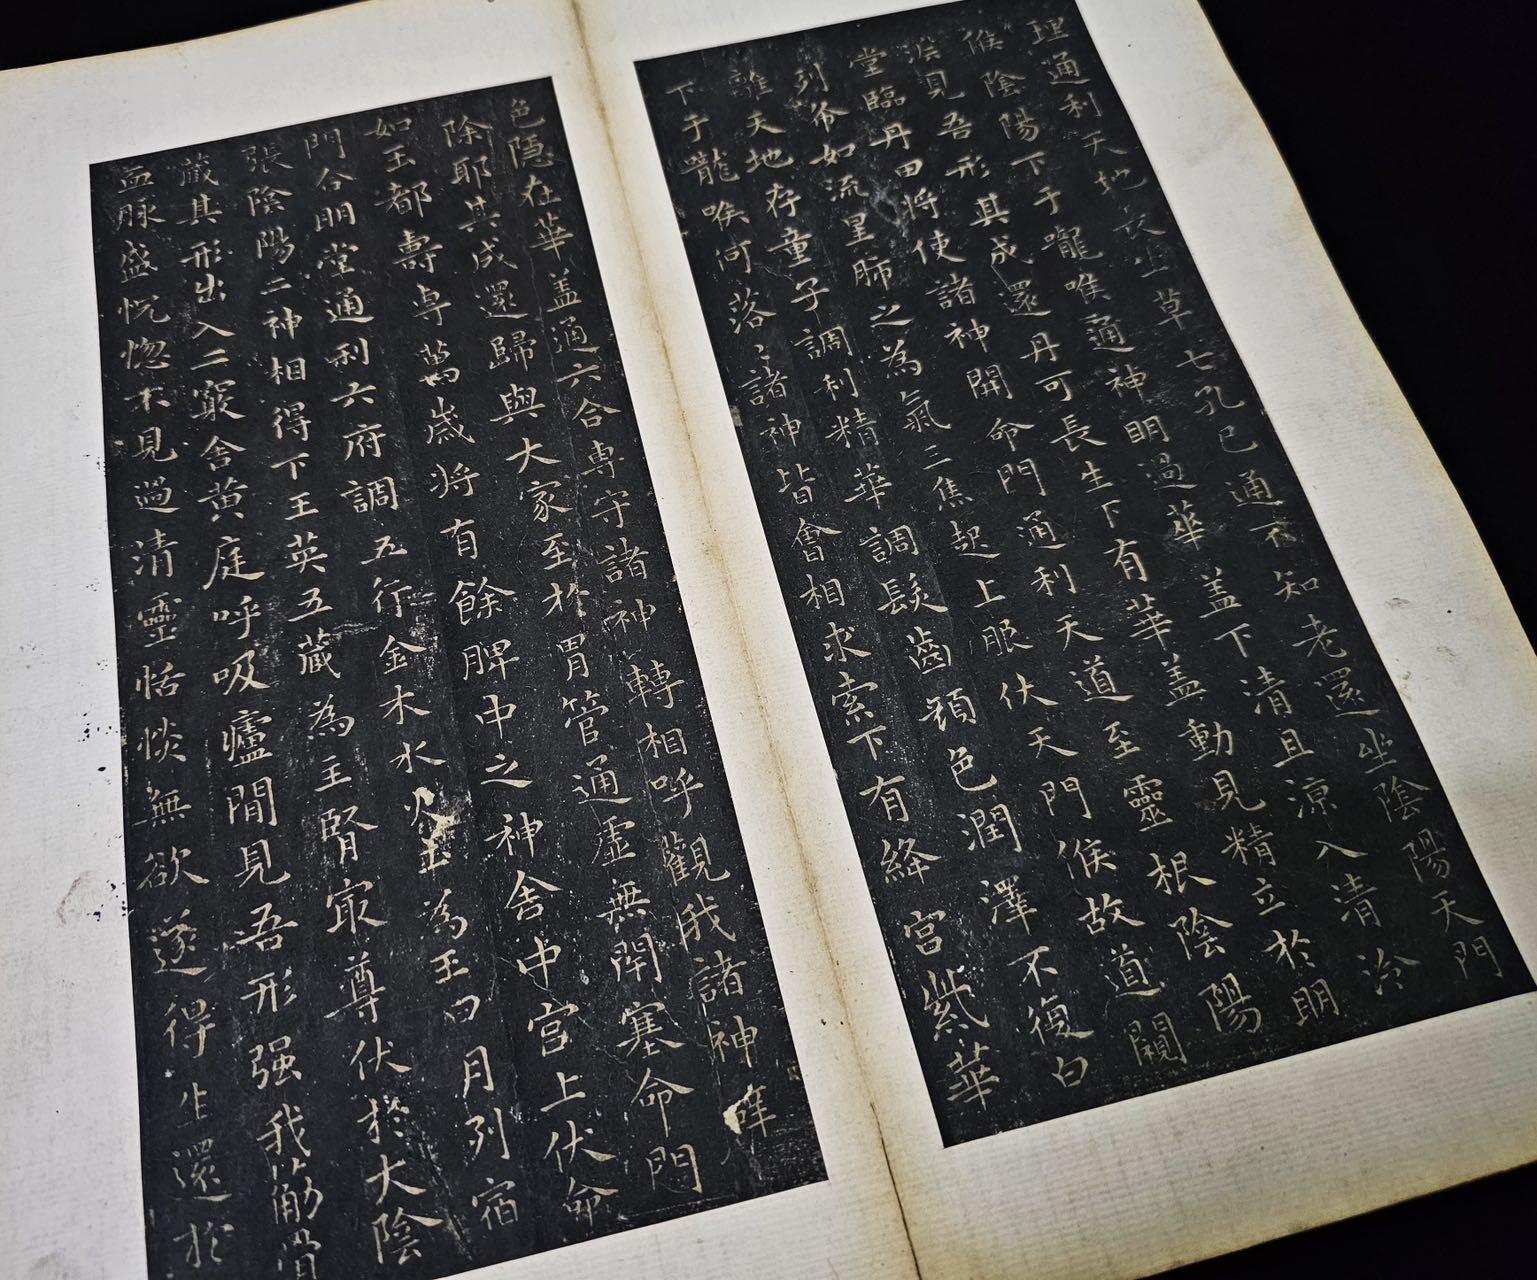 理通利天地長生草七孔已通不知老還坐陰陽天門
候陰陽下于嚨喉通神明過華蓋下清且涼入清泠
淵見吾形其成還丹可長生下有華蓋動見精立於明
堂臨丹田將使諸神開命門通利天道至靈根陰陽
列布如流星肺之為氣三焦起上服伏天門候故道闚
離天地存童子調利精華調髮齒顏色潤澤不復白
下于嚨喉何落〻諸神皆會相求索下有絳宮紫華
色隱在華蓋通六合專守諸神轉相呼觀我諸神辟
除耶其成還歸與大家至於胃管通虛無閉塞命門
如玉都壽專萬歲將有餘脾中之神舍中宮上伏命
門合明堂通利六府調五行金木水火土為王日月列宿
張陰陽二神相得下玉英五藏為主腎㝡尊伏於大陰
藏其形出入二竅舍黃庭呼吸廬間見吾形强我筋骨
血脉盛恍惚不見過清靈恬惔無欲遂得生還於